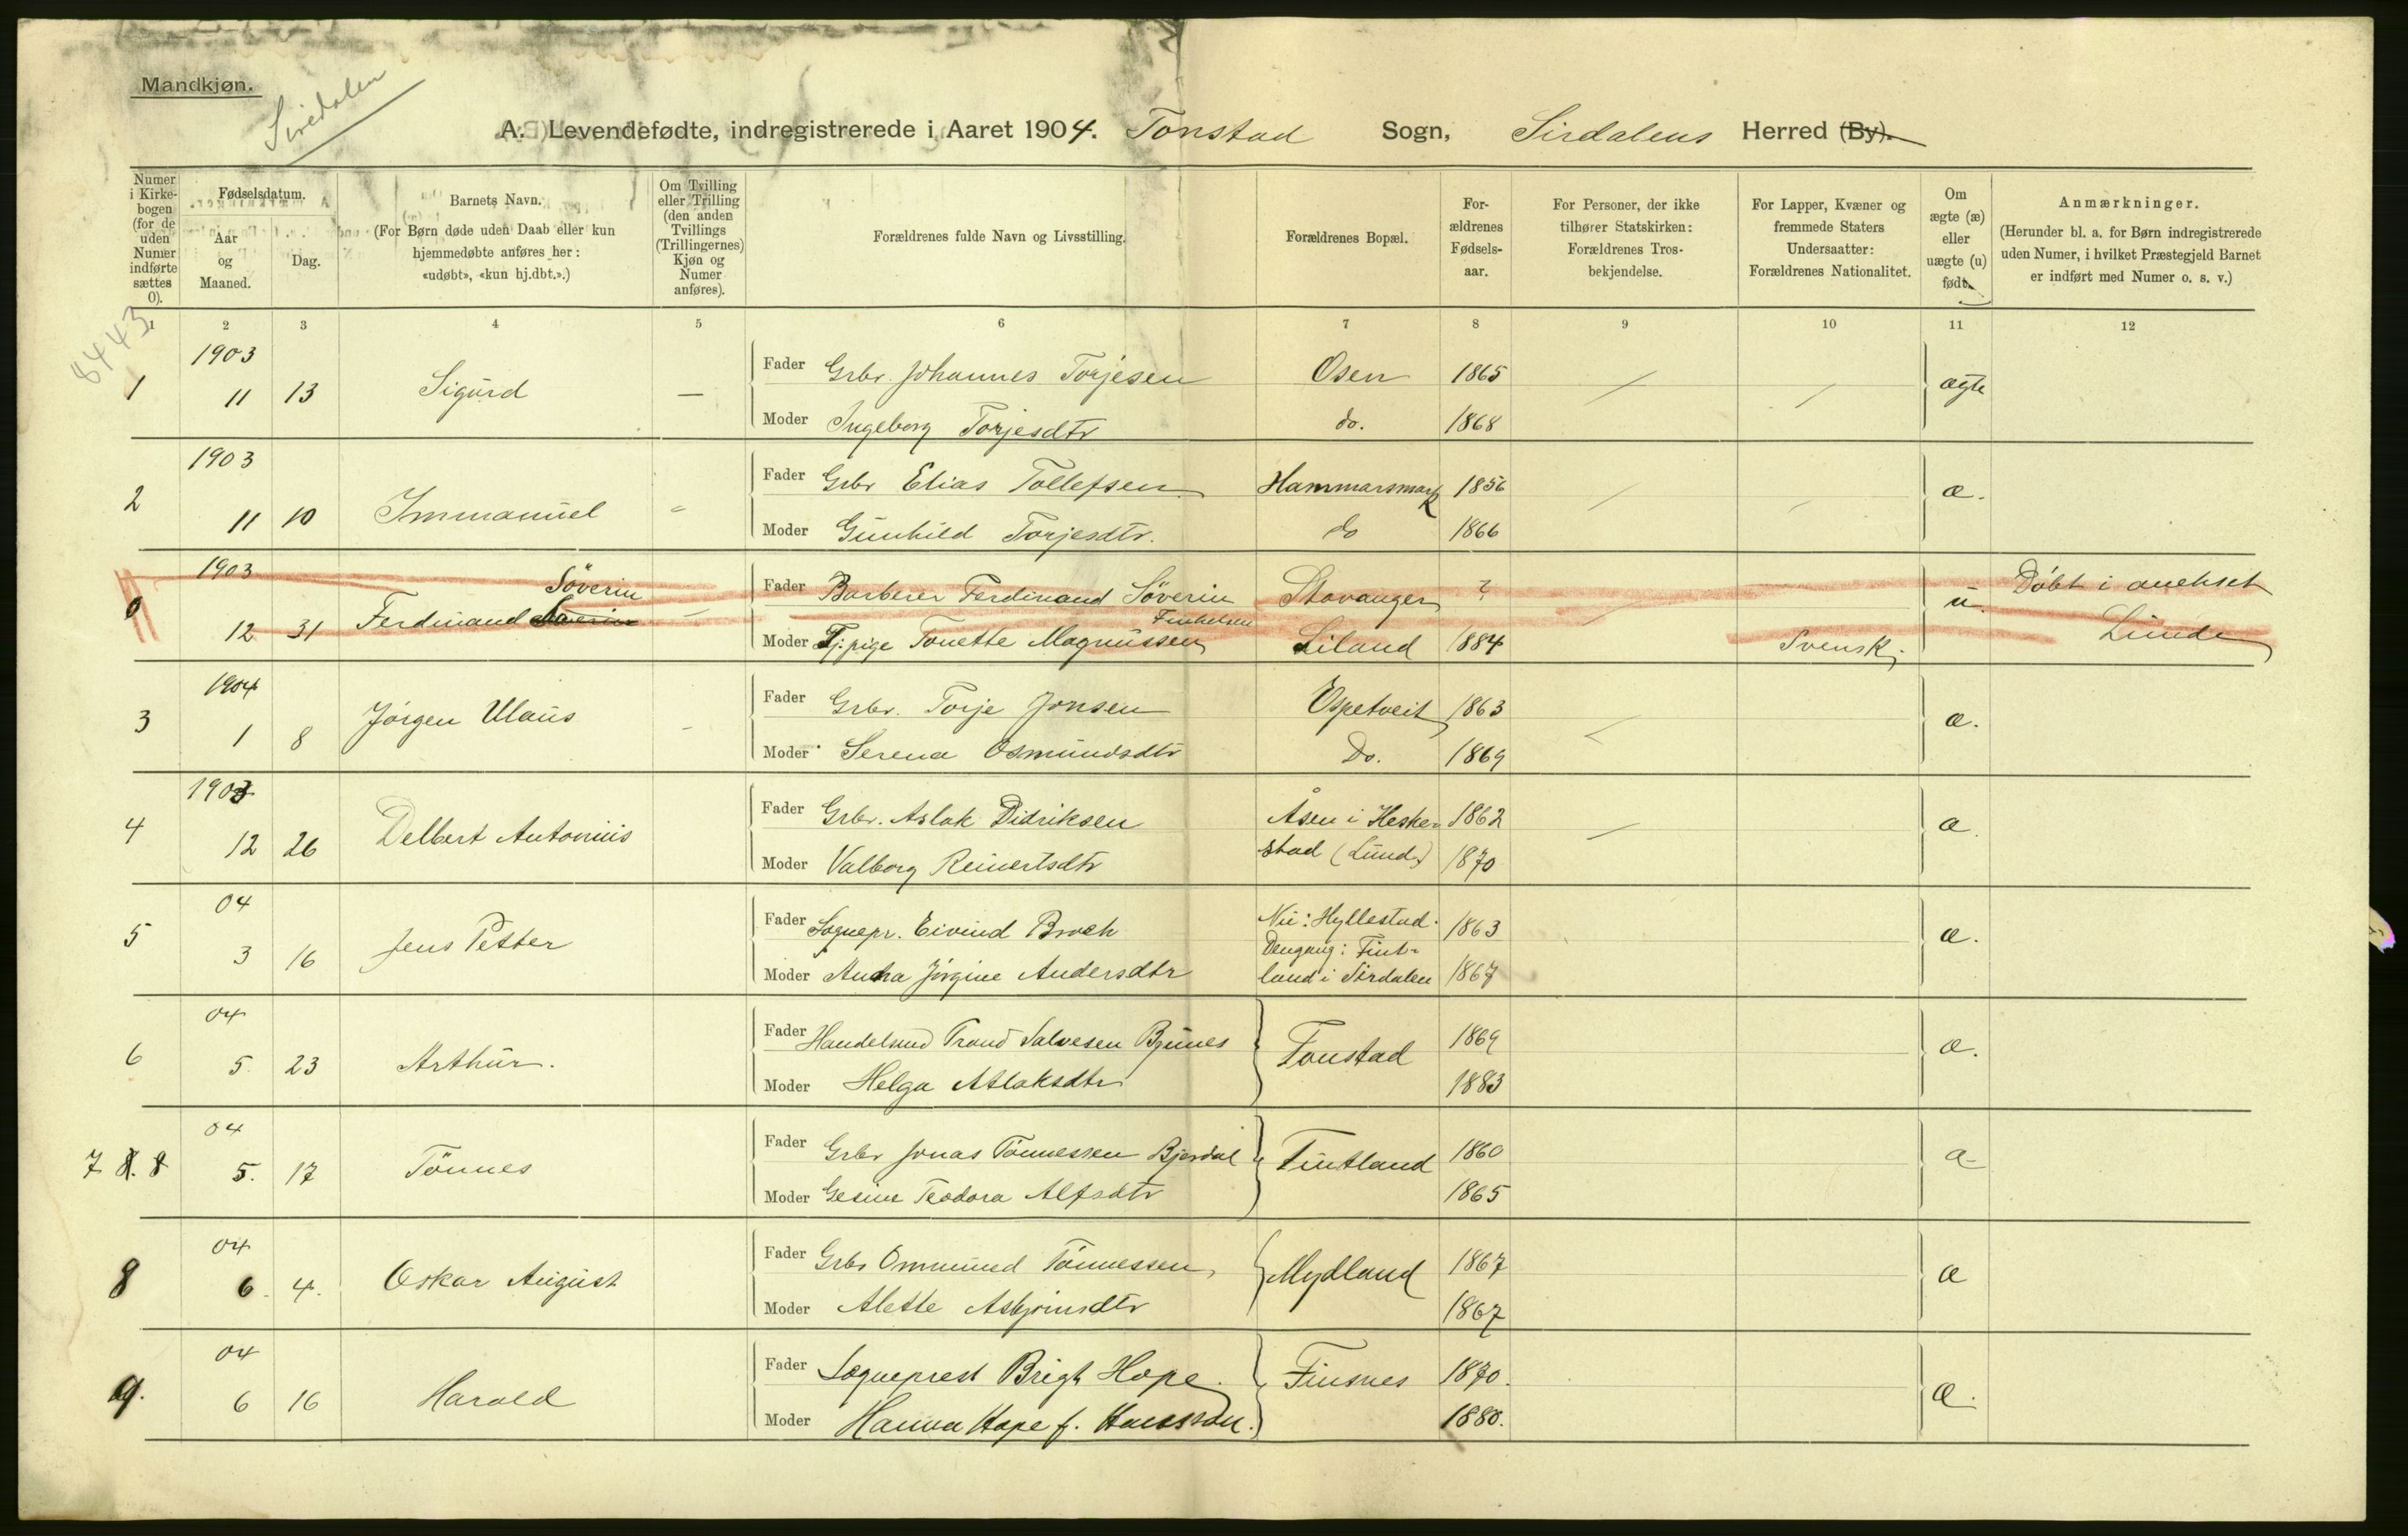 Mandkjøn.
Siredalen
A. Levendefødte, indregistrerede i Aaret 1904. Tonstad Sogn, Sirdalens Herred (By).
Numer i Kirkebogen (for de uden Numer indførte sættes 0).
Fødselsdatum.
Aar og Maaned.
Dag.
Barnets Navn.
(For Børn døde uden Daab eller kun hjemmedøbte anføres her: «udøbt», «kun hj.dbt.».)
Om Tvilling eller Trilling (den anden Tvillings (Trillingernes) Kjøn og Numer anføres).
Forældrenes fulde Navn og Livsstilling.
Forældrenes Bopæl.
Forældrenes Fødselsaar.
For Personer, der ikke tilhører Statskirken: Forældrenes Trosbekjendelse.
For Lapper, Kvæner og fremmede Staters Undersaatter: Forældrenes Nationalitet.
Om ægte (æ) eller uægte (u) født.
Anmærkninger.
(Herunder bl. a. for Børn indregistrerede uden Numer, i hvilket Præstegjeld Barnet er indført med Numer o. s. v.)
8443
1 2 3 4 5 6 7 8 9 10 11 12
1903
1 11 13 Sigurd — Fader Grbr. Johannes Torjesen Osen 1865 ægte
Moder Ingeborg Torjesdtr do. 1868
1903
2 11 10 Immanuel Fader Grbr Elias Tollefsen Hammarsmark 1856 æ.
Moder Gunhild Torjesdtr. do 1866
1903
0 12 31 Ferdinand Söverin Fader Barberer Ferdinand Söverin Stavanger ? u. Döbt i anekset
Moder Tj. pige Tonette Magnussen Liland 1884 Svensk. Lunde
1904
3 1 8 Jörgen Klaus Fader Grbr. Torje Jonsen Espetveit 1863 æ.
Moder Serena Osmundsdtr Do. 1869
1903
4 12 26 Delbert Antonius Fader Grbr. Aslak Didriksen Åsen i Heske- 1862 æ.
Moder Valborg Reinertsdtr stad (Lunde) 1870
04
5 3 16 Jens Petter Fader Sognepr. Eivind Broch Nu: Hyllestad. 1863 æ.
Dengang: Fint-
Moder Anna Jörgine Andersdtr land i Sirdalen 1867
04
6 5. 23 Arthur. Fader Handelsmd Trond Salvesen Bjunes Tonstad 1869 æ.
Moder Helga Aslaksdtr 1883
04
7 8. 8 5. 17 Tönnes Fader Grbr Jonas Tönnessen Bjordal Fintland 1860 æ
Moder Gesine Teodora Alfsdtr 1865
04
8 6. 4. Oskar August Fader Grbr Ommund Tönnessen Mydland 1867 æ
Moder Alette Asbjörnsdtr 1867
04
9. 6 16 Harald Fader Sogneprest Brigt Hope. Finsnes 1870. æ.
Moder Hanna Hope f. Hansson. 1880.